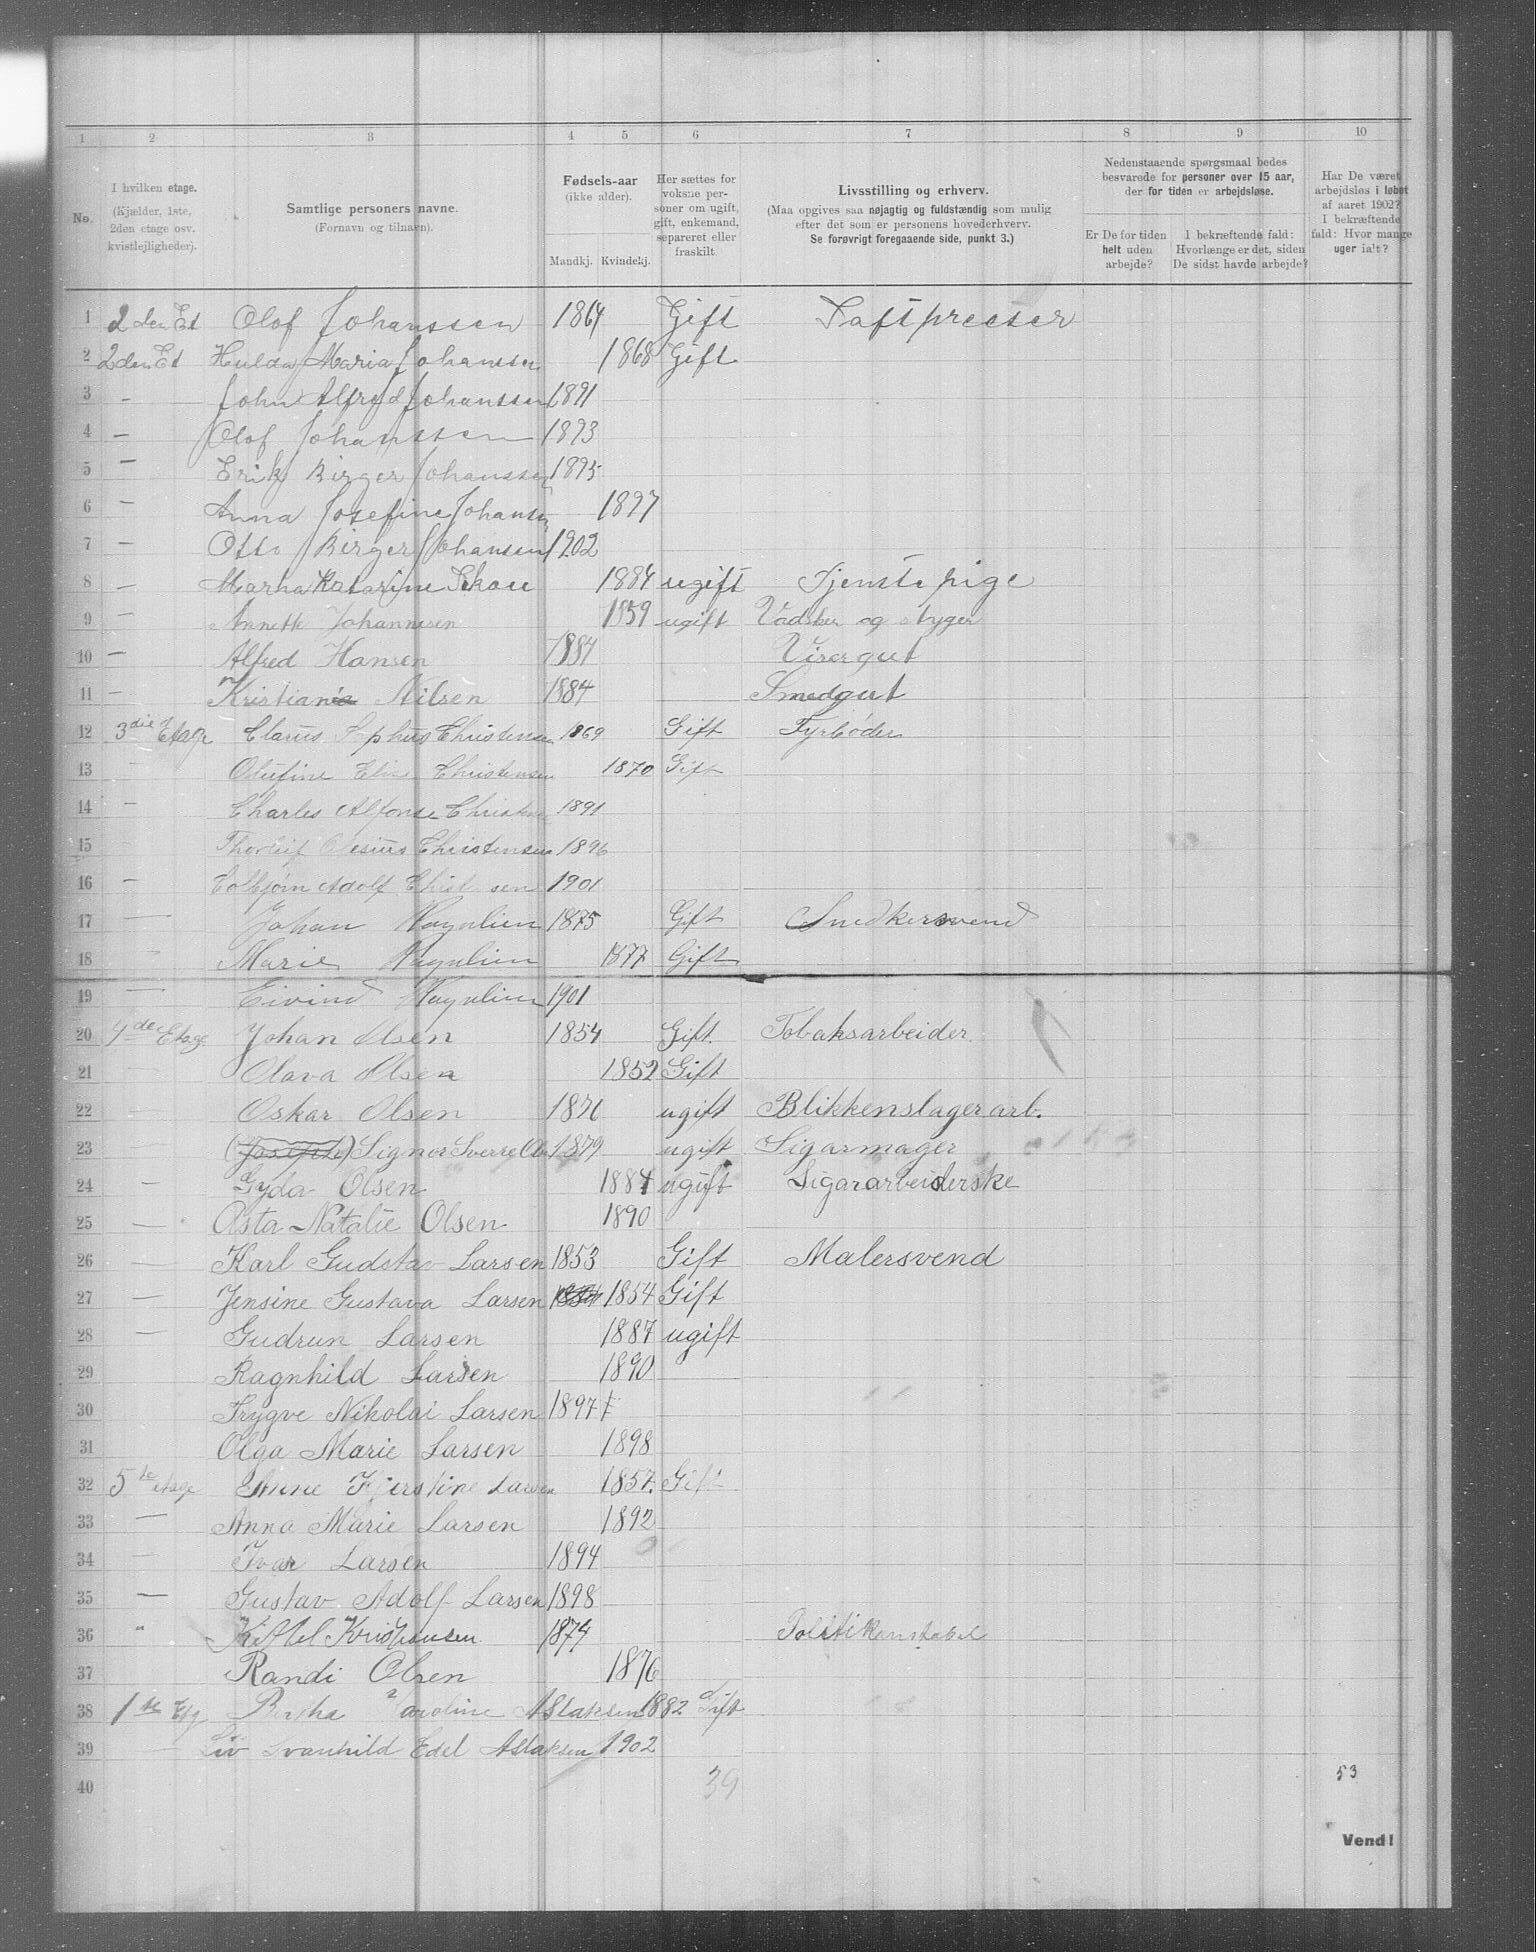 1 2 3 4 5 6 7 8 9 10
No.
I hvilken etage.
(Kjælder, 1ste,
2den etage osv.
kvistlejligheder).
Samtlige personers navne.
(Fornavn og tilnavn).
Fødsels-aar
(ikke alder).
Mandkj. Kvindekj.
Her sættes for
voksne per-
soner om ugift,
gift, enkemand,
separeret eller
fraskilt.
Livsstilling og erhverv.
(Maa opgives saa nøjagtig og fuldstændig som mulig
efter det som er personens hovederhverv.
Se forøvrigt foregaaende side, punkt 3.)
Nedenstaaende spørgsmaal bedes
besvarede for personer over 15 aar,
der for tiden er arbejdsløse.
Er De for tiden
helt uden
arbejde?
I bekræftende fald:
Hvorlænge er det, siden
De sidst havde arbejde?
Har De været
arbejdsløs i løbet
af aaret 1902?
I bekræftende
fald: Hvor mange
uger ialt?
1 2den Et Olof Johanssen 1864 Gift Saftpresser
2 2den Et Hulda Maria Johanssen 1868 Gift
3 - John Alfred Johanssen 1891
4 - Olof Johanssen 1893
5 - Erik Birger Johanssen 1895
6 - Anna Josefine Johansen 1897
7 - Otto Birger Johansen 1902
8 - Marna Katarine Skou 1884 ugift Tjenstepige
9 - Annette Johannesen 1859 ugift Vadsker og Stryger
10 - Alfred Hansen 1884 Visergut
11 - Kristian Nilsen 1884 Smedgut
12 3die Etage Clarus Sophus Christensen 1869 Gift Fyrbøder
13 - Olufine Elin Christensen 1870 Gift
14 - Charles Alfonse Christensen 1891
15 - Thorleif Christensen 1896
16 - Colbjørn Adolf Christensen 1901
17 - Johan Haynlien 1875 Gift Snedkersvend
18 - Marie Haynlien 1877 Gift
19 - Eivind Haynlien 1901
20 4de Etage Johan Olsen 1854 Gift. Tobaksarbeider
21 - Olava Olsen 1852 Gift
22 - Oskar Olsen 1876 ugift Blikkenslagerarb.
23 - (Josefste) Signor Sverre Ol 1879 ugift Sigarmager
24 - Gyda Olsen 1884 ugift Sigararbeiderske
25 - Asta Natalie Olsen 1890
26 - Karl Gudstav Larsen 1853 Gift Malersvend
27 - Jensine Gustava Larsen 1854 Gift
28 - Gudrun Larsen 1887 ugift
29 - Ragnhild Larsen 1890
30 - Trygve Nikolai Larsen 1897
31 - Olga Marie Larsen 1898
32 5te etage Anne Kjerstine Larsen 1857. Gift
33 - Anna Marie Larsen 1892
34 - Ivar Larsen 1894
35 - Gustav Adolf Larsen 1898
36 " Kittel Kristiansen 1874 Politikonstabel
37 Randi Olsen 1876
38 1ste Etg Bertha Karoline Aslaksen 1882 Gift
39 - Liv Svanhild Edel Aslaksen 1902
40 39
53
Vend!